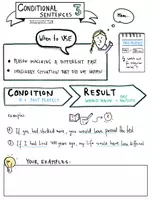 CONDITIONAL
SENTENCES 3
When to USE
• PERSON IMAGINING A DIFFERENT PAST
• IMAGINARY SITUATIONS THAT DID NOT HAPPEN
CONDITION
IF + PAST PERFECT
RESULT
Examples:
① If you had studied more, you would have passed the test
② If I had lived years ago, my life would have been different
YOUR EXAMPLES: